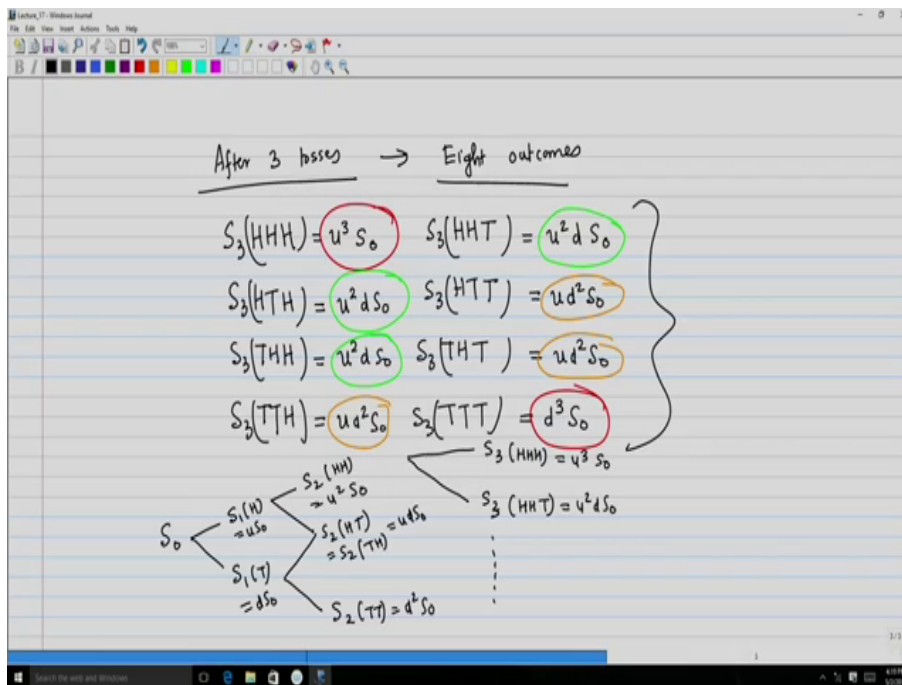 Lecture_17 - Windows Journal
File Edit View Insert Actions Tools Help
B I
After 3 tosses → Eight outcomes
S₃(HHH) = u³ S₀ S₃(HHT) = u²d S₀
S₃(HTH) = u²d S₀ S₃(HTT) = ud² S₀
S₃(THH) = u²d S₀ S₃(THT) = ud² S₀
S₃(TTH) = ud² S₀ S₃(TTT) = d³ S₀
S₃(HHH) = u³ S₀
S₂(HH)
= u² S₀
S₃(HHT) = u²d S₀
S₁(H)
= uS₀
S₀
S₂(HT) = udS₀
= S₂(TH)
S₁(T)
= dS₀
S₂(TT) = d² S₀
Search the web and Windows